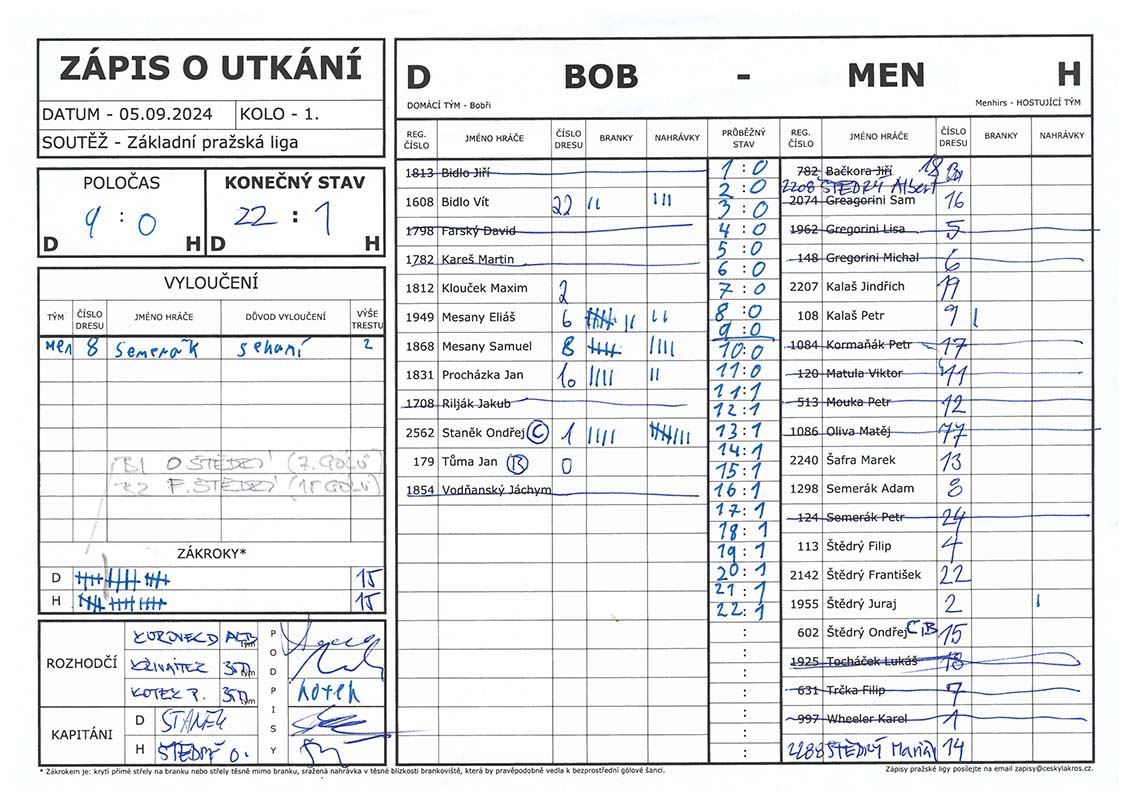 ZÁPIS O UTKÁNÍ
DATUM - 05.09.2024 KOLO - 1.
SOUTĚŽ - Základní pražská liga
POLOČAS KONEČNÝ STAV
9 : 0 22 : 1
D H D H
VYLOUČENÍ
TÝM ČÍSLO DRESU JMÉNO HRÁČE DŮVOD VYLOUČENÍ VÝŠE TRESTU
MEN 8 Semerák sekání 2
O ŠTĚDRÝ (7. GOLŮ)
F. ŠTĚDRÝ
ZÁKROKY*
D 15
H 15
ROZHODČÍ PODPISY
tým
KŘIVÁTEZ tým
KOTEK P. tým kotek
KAPITÁNI
D STANĚK
H ŠTĚDRÝ O.
D BOB - MEN H
DOMÁCÍ TÝM - Bobři Menhirs - HOSTUJÍCÍ TÝM
REG. ČÍSLO JMÉNO HRÁČE ČÍSLO DRESU BRANKY NAHRÁVKY PRŮBĚŽNÝ STAV REG. ČÍSLO JMÉNO HRÁČE ČÍSLO DRESU BRANKY NAHRÁVKY
1813 Bidlo Jiří
1608 Bidlo Vít 22 || |||
1798 Farský David
1782 Kareš Martin
1812 Klouček Maxim 2
1949 Mesany Eliáš 6 |||| || ||
1868 Mesany Samuel 8 |||| ||||
1831 Procházka Jan 10 |||| ||
1708 Rilják Jakub
2562 Staněk Ondřej C 1 |||| |||| |||
179 Tůma Jan B 0
1854 Vodňanský Jáchym
1:0
2:0
3:0
4:0
5:0
6:0
7:0
8:0
9:0
10:0
11:0
11:1
12:1
13:1
14:1
15:1
16:1
17:1
18:1
19:1
20:1
21:1
22:1
:
:
:
:
:
:
:
782 Bačkora Jiří 18
2208 ŠTĚDRÝ Albert
2074 Greagorini Sam 16
1962 Gregorini Lisa 5
148 Gregorini Michal 6
2207 Kalaš Jindřich 19
108 Kalaš Petr 9 |
1084 Kormaňák Petr 17
120 Matula Viktor 11
513 Mouka Petr 12
1086 Oliva Matěj 77
2240 Šafra Marek 13
1298 Semerák Adam 8
124 Semerák Petr 24
113 Štědrý Filip 4
2142 Štědrý František 22
1955 Štědrý Juraj 2 |
602 Štědrý Ondřej C B 15
1925 Tocháček Lukáš 18
631 Trčka Filip 7
997 Wheeler Karel 1
2288 ŠTĚDRÝ Marián 14
* Zákrokem je: krytí přímé střely na branku nebo střely těsně mimo branku, sražená nahrávka v těsné blízkosti brankoviště, která by pravěpodobně vedla k bezprostřední gólové šanci.
Zápisy pražské ligy posílejte na email zapisy@ceskylakros.cz.